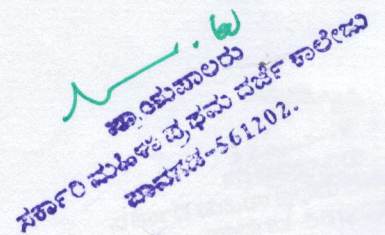 ಪ್ರಾಂಶುಪಾಲರು
ಸರ್ಕಾರಿ ಮಹಿಳಾ ಪ್ರಥಮ ದರ್ಜೆ ಕಾಲೇಜು
ಪಾವಗಡ-561202.